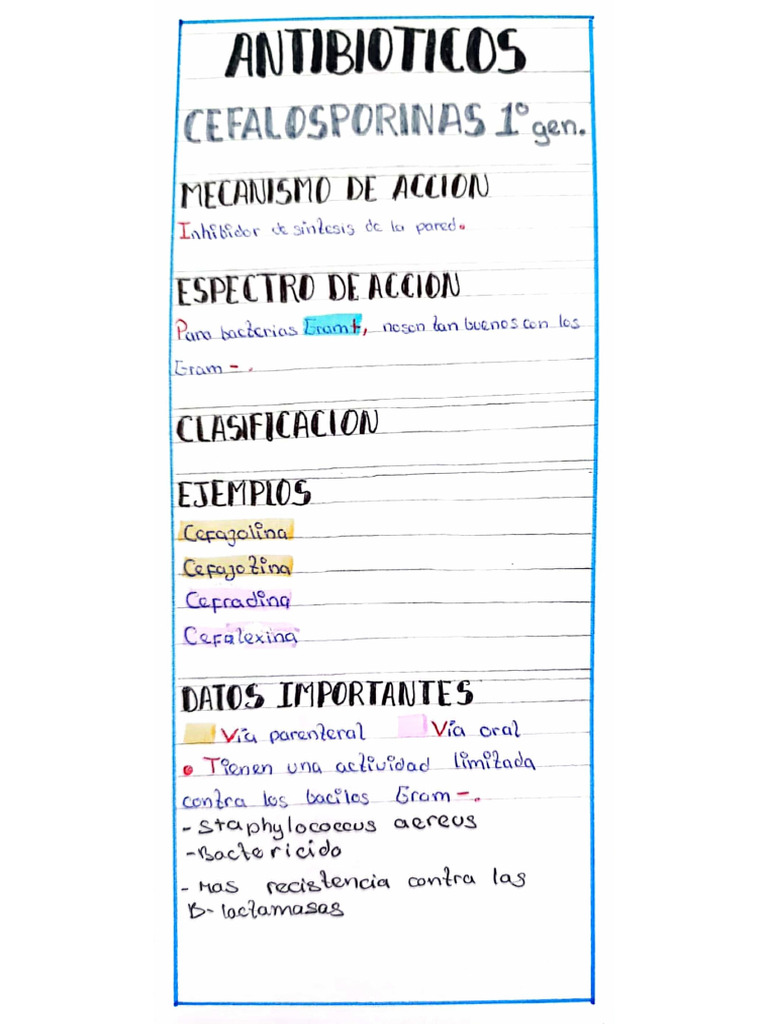 ANTIBIOTICOS
CEFALOSPORINAS 1° gen.
MECANISMO DE ACCION
Inhibidor de síntesis de la pared.
ESPECTRO DE ACCION
Para bacterias Gram+, no son tan buenos con los
Gram -.
CLASIFICACION
EJEMPLOS
Cefazolina
Cefazotina
Cefradina
Cefalexina
DATOS IMPORTANTES
Vía parenteral Vía oral
• Tienen una actividad limitada
contra los bacilos Gram -.
- Staphylococcus aereus
- Bactericido
- Mas recistencia contra las
B- lactamasas